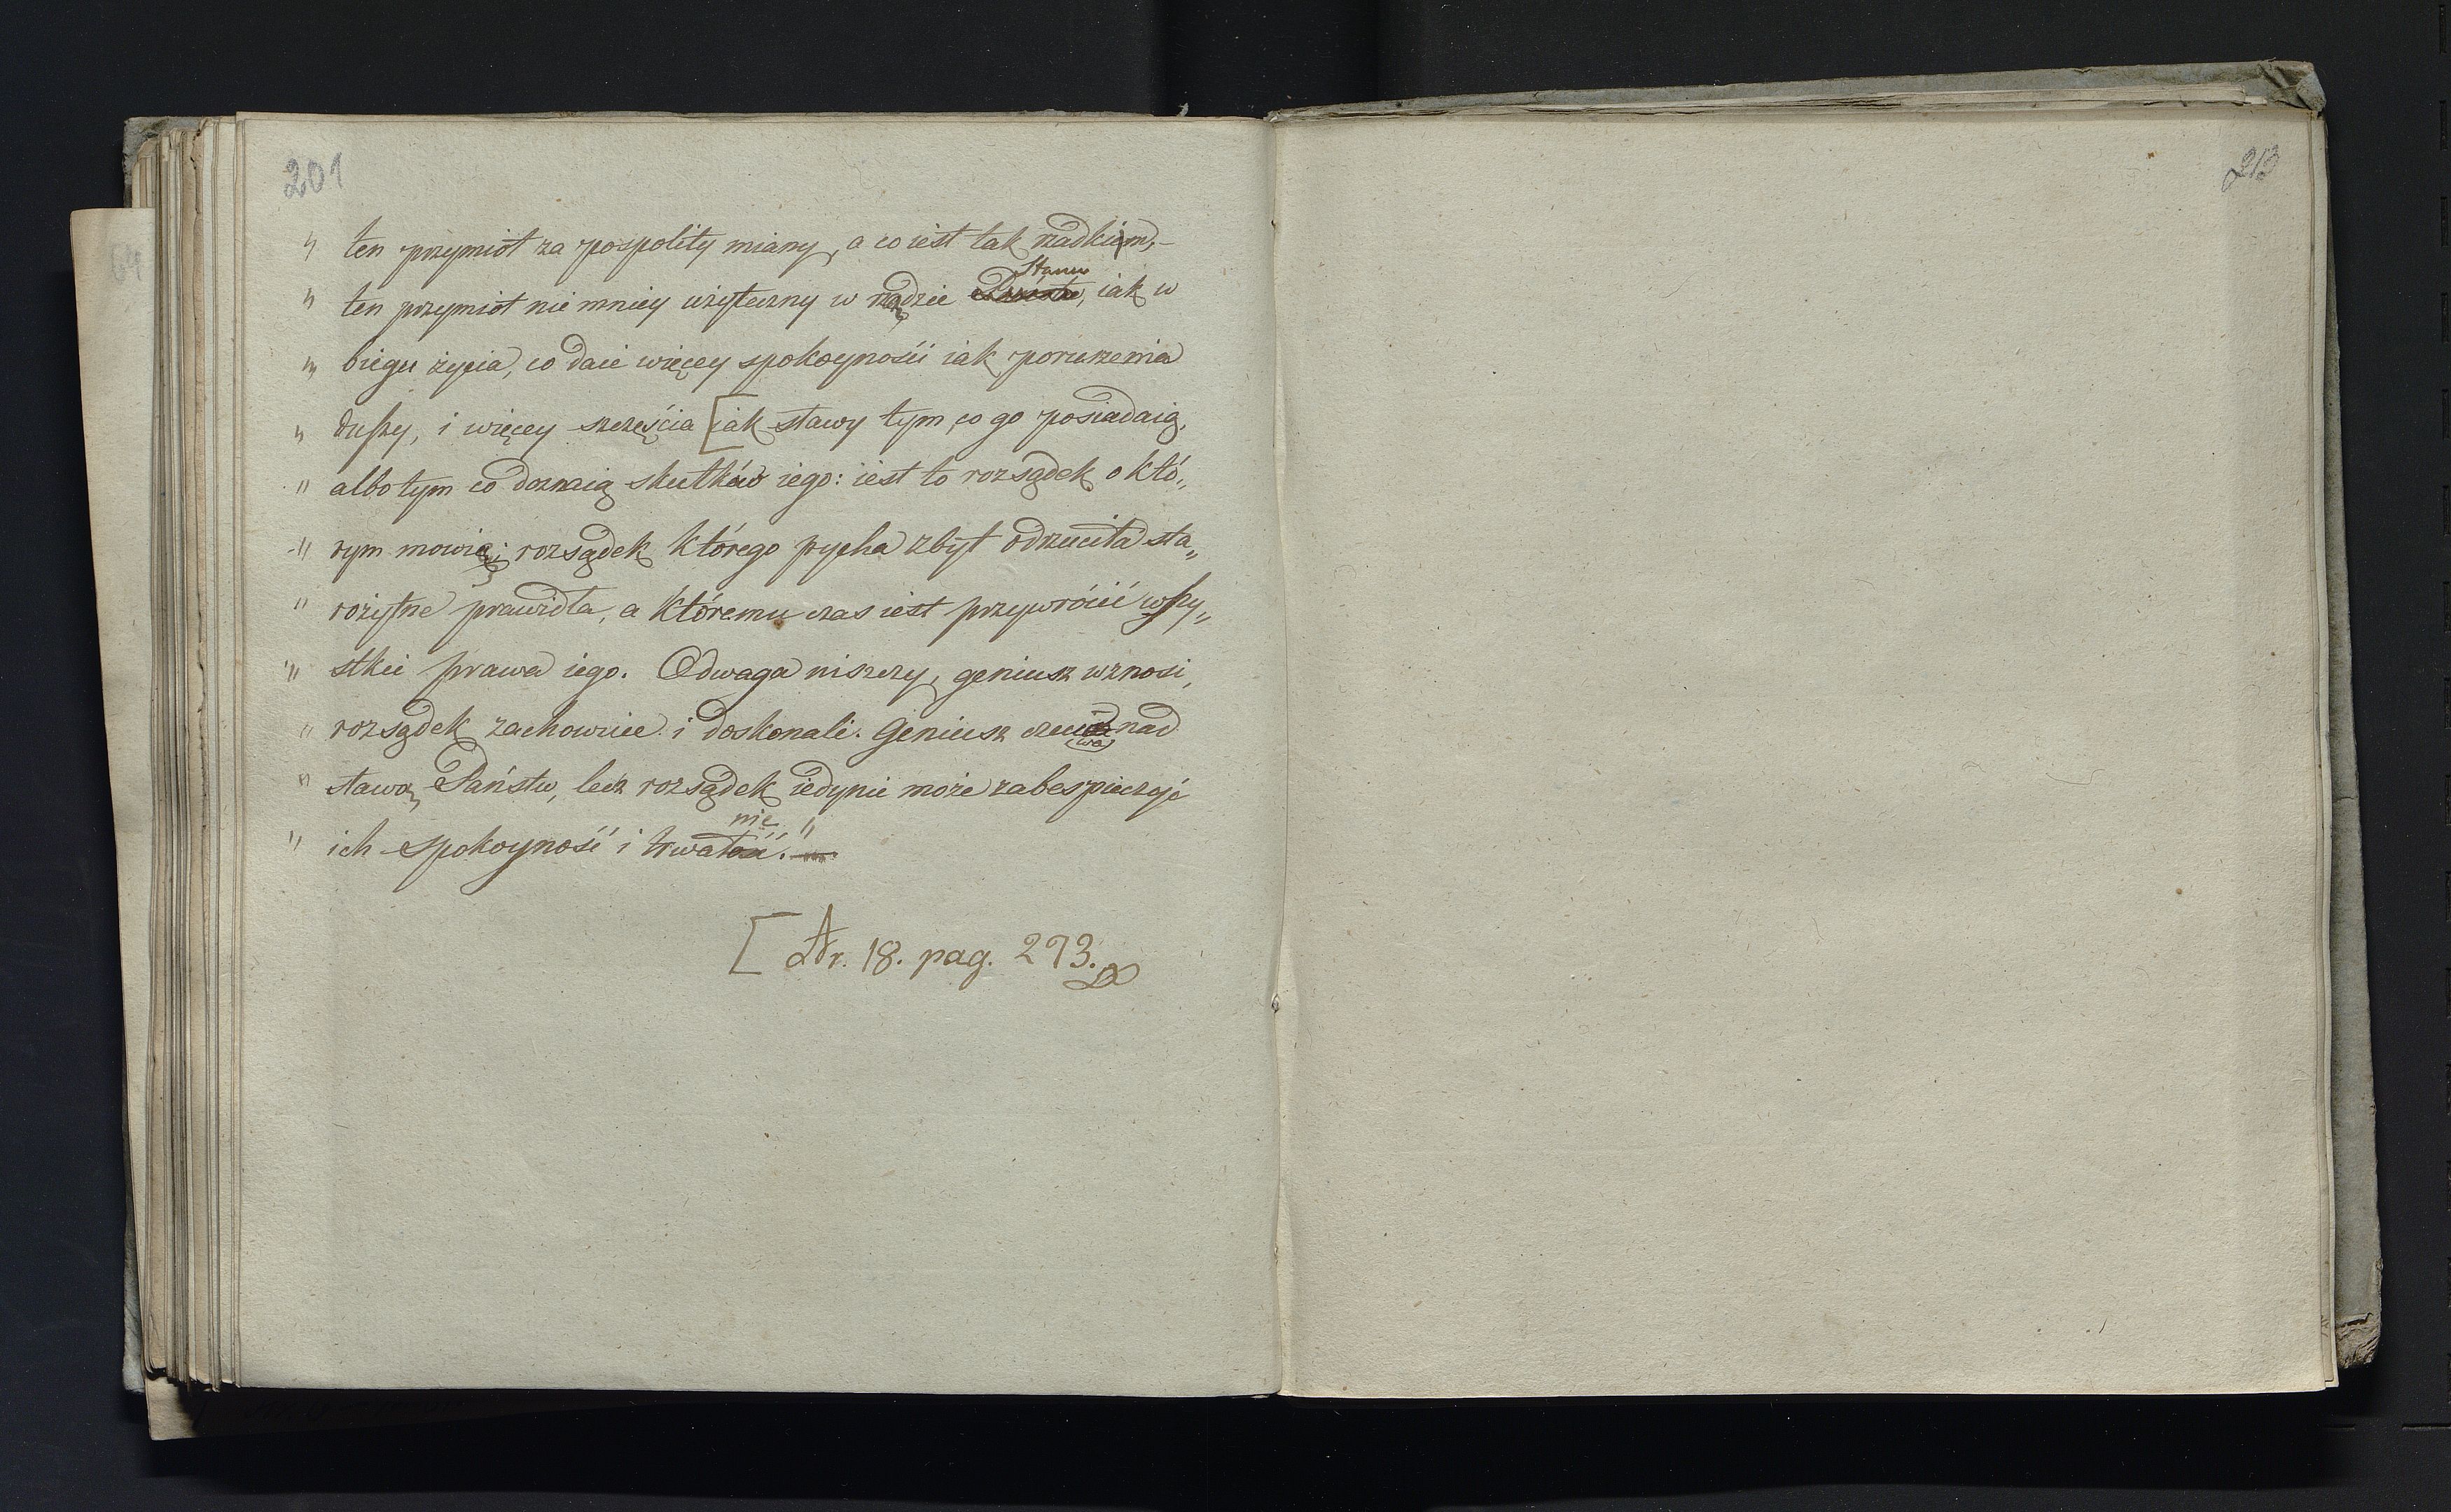 201
213
" ten przymiot za pospolity miany, a co iest tak rzadkiem,-
" ten przymiot nie mniey użyteczny w rządzie Stanu, iak w
" biegu życia, co daie więcey spokoyności iak poruszenia
" duszy, i więcey szczęścia [iak sławy tym co go posiadaią,
" albo tym co doznaią skutków iego: iest to rozsądek o któ„
" rym mowię; rozsądek którego pycha zbyt odrzuciła sta„
" rożytne prawidła, a któremu czas iest przywrócić wszy„
" stkie prawa iego. Odwaga niszczy, geniusz wznosi,
" rozsądek zachowuie i doskonali. Geniusz czuwa nad
" sławą Państw, lecz rozsądek iedynie może zabespieczyć
nie
" ich spokoyność i trwałość."
[Nr. 18. pag. 273.